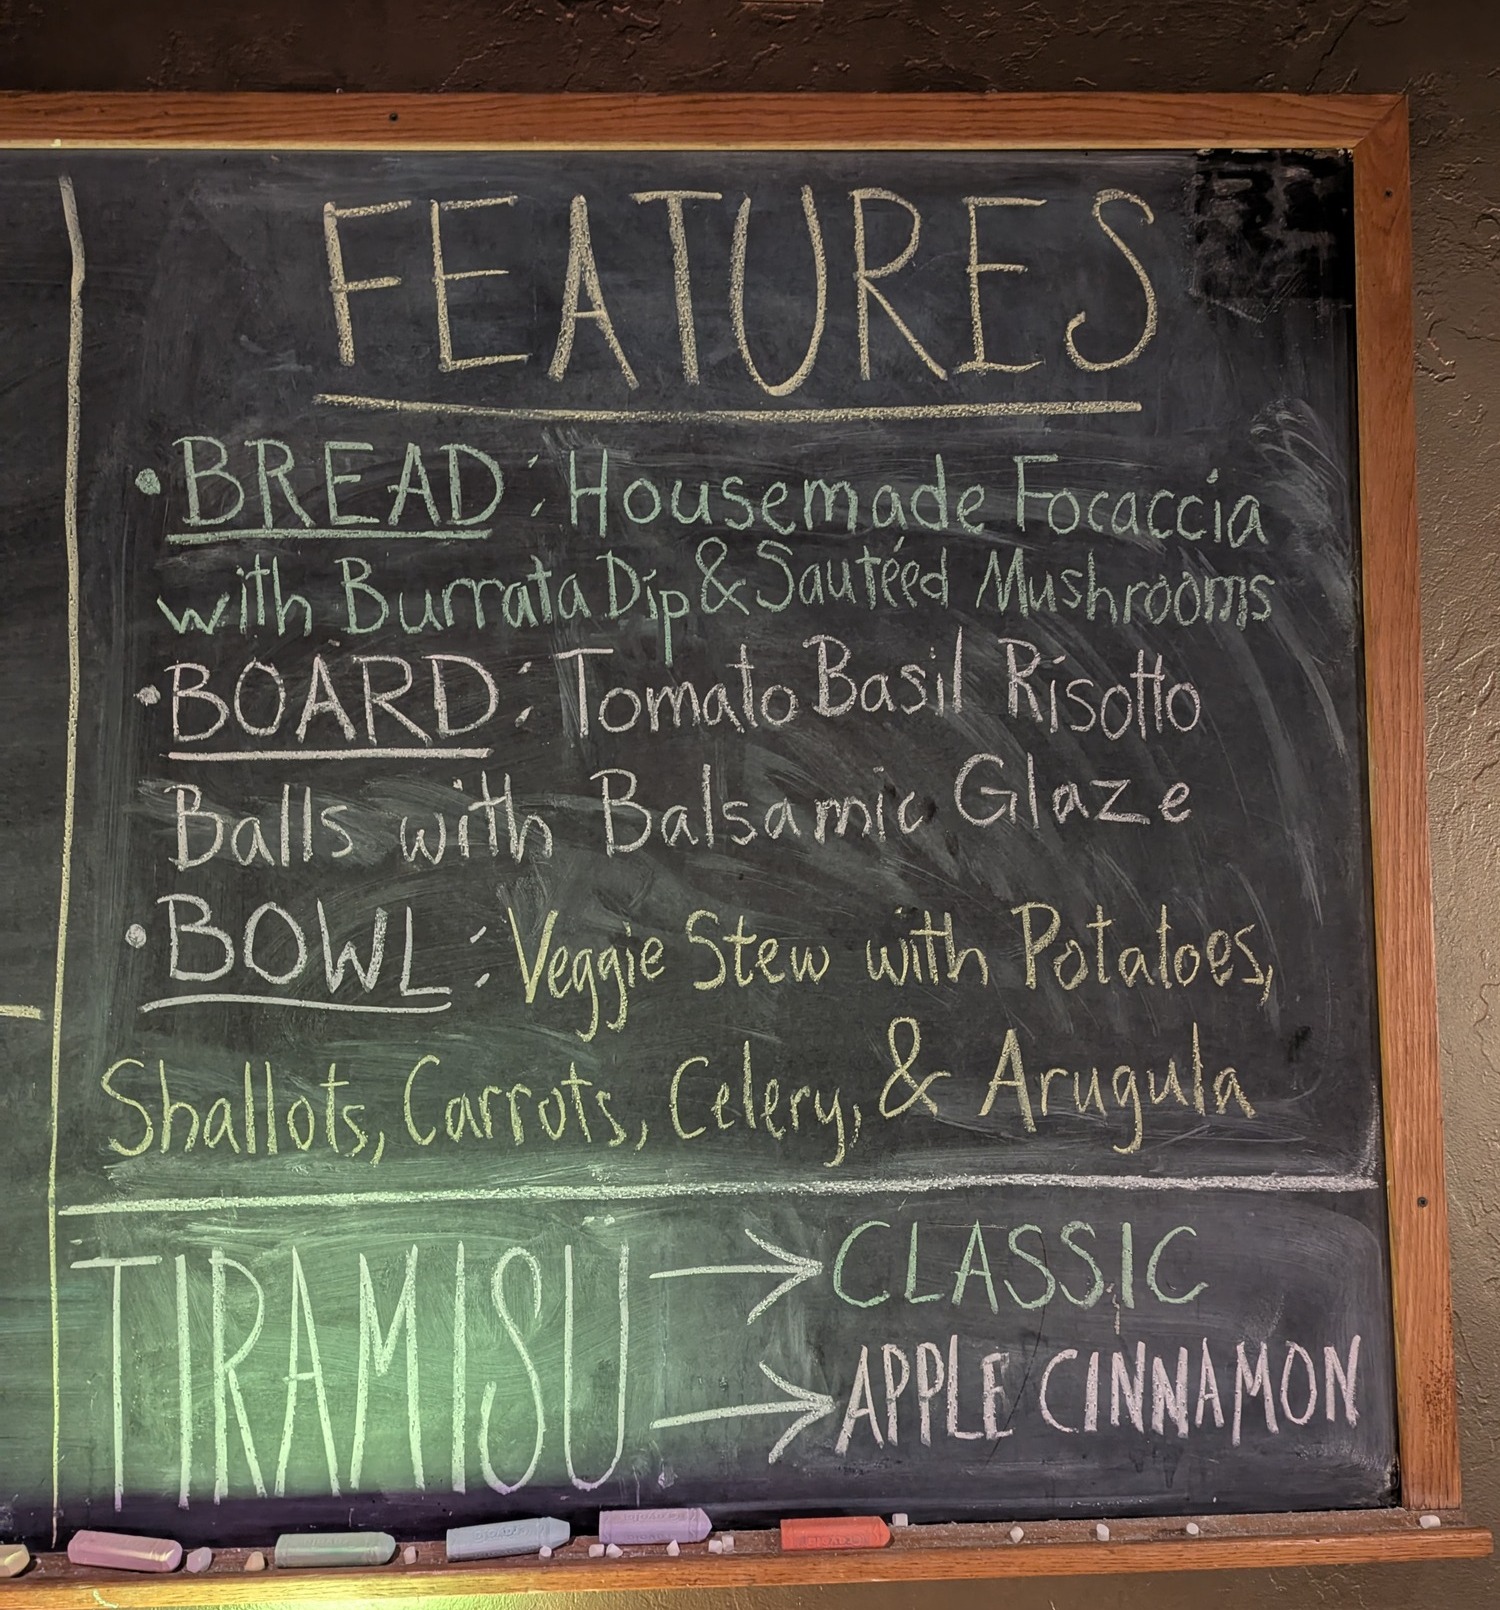 FEATURES
• BREAD: Housemade Focaccia
with Burrata Dip & Sautéed Mushrooms
• BOARD: Tomato Basil Risotto
Balls with Balsamic Glaze
• BOWL: Veggie Stew with Potatoes,
Shallots, Carrots, Celery, & Arugula
TIRAMISU → CLASSIC
→ APPLE CINNAMON